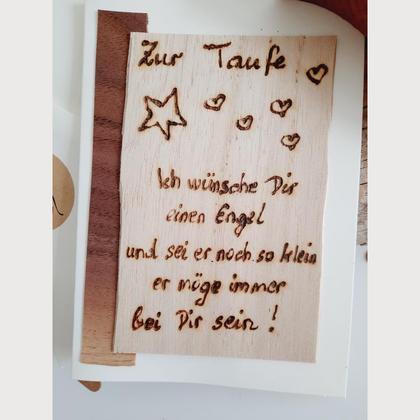 Zur Taufe
Ich wünsche Dir
einen Engel
und sei er noch so klein
er möge immer
bei Dir sein!